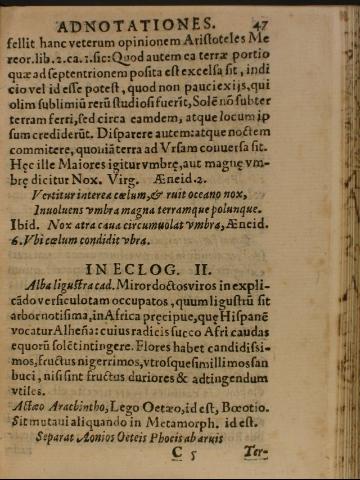 ADNOTATIONES. 47
fellit hanc veterum opinionem Aristoteles Me
teor. lib. 2. ca. 1. sic: Quod autem ea terræ portio
quæ ad septentrionem posita est excelsa sit, indi
cio vel id esse potest, quod non pauci ex ijs, qui
olim sublimiũ rerũ studiosi fuerĩt, Solẽ nõ subter
terram ferri, sed circa eamdem, atque locum ip
sum crediderũt. Disparere autem: atque noctem
commitere, quoniã terra ad Vrsam conuersa sit.
Hęc ille Maiores igitur vmbrę, aut magnę vm-
brę dicitur Nox. Virg. Æneid. 2.
Vertitur interea cœlum, & ruit oceano nox,
Inuoluens vmbra magna terramque polunque.
Ibid. Nox atra caua circumuolat vmbra, Æneid.
6. Vbi cœlum condidit vbra.
IN ECLOG. II.
Alba ligustra cad. Miror doctos viros in expli-
cãdo versiculo tam occupatos, quum ligustrũ sit
arbor notisima, in Africa pręcipue, quę Hispanẽ
vocatur Alheña: cuius radicis succo Afri caudas
equorũ solẽt intingere. Flores habet candidissi-
mos, fructus nigerrimos, vtrosque simillimos san
buci, nisi sint fructus duriores & adtingendum
vtiles.
Actæo Aracbintho, Lego Oetæo, id est, Bœotio.
Sit mutui aliquando in Metamorph. id est.
Separat Aonios Oeteis Phocis ab aruis
C 5 Ter-